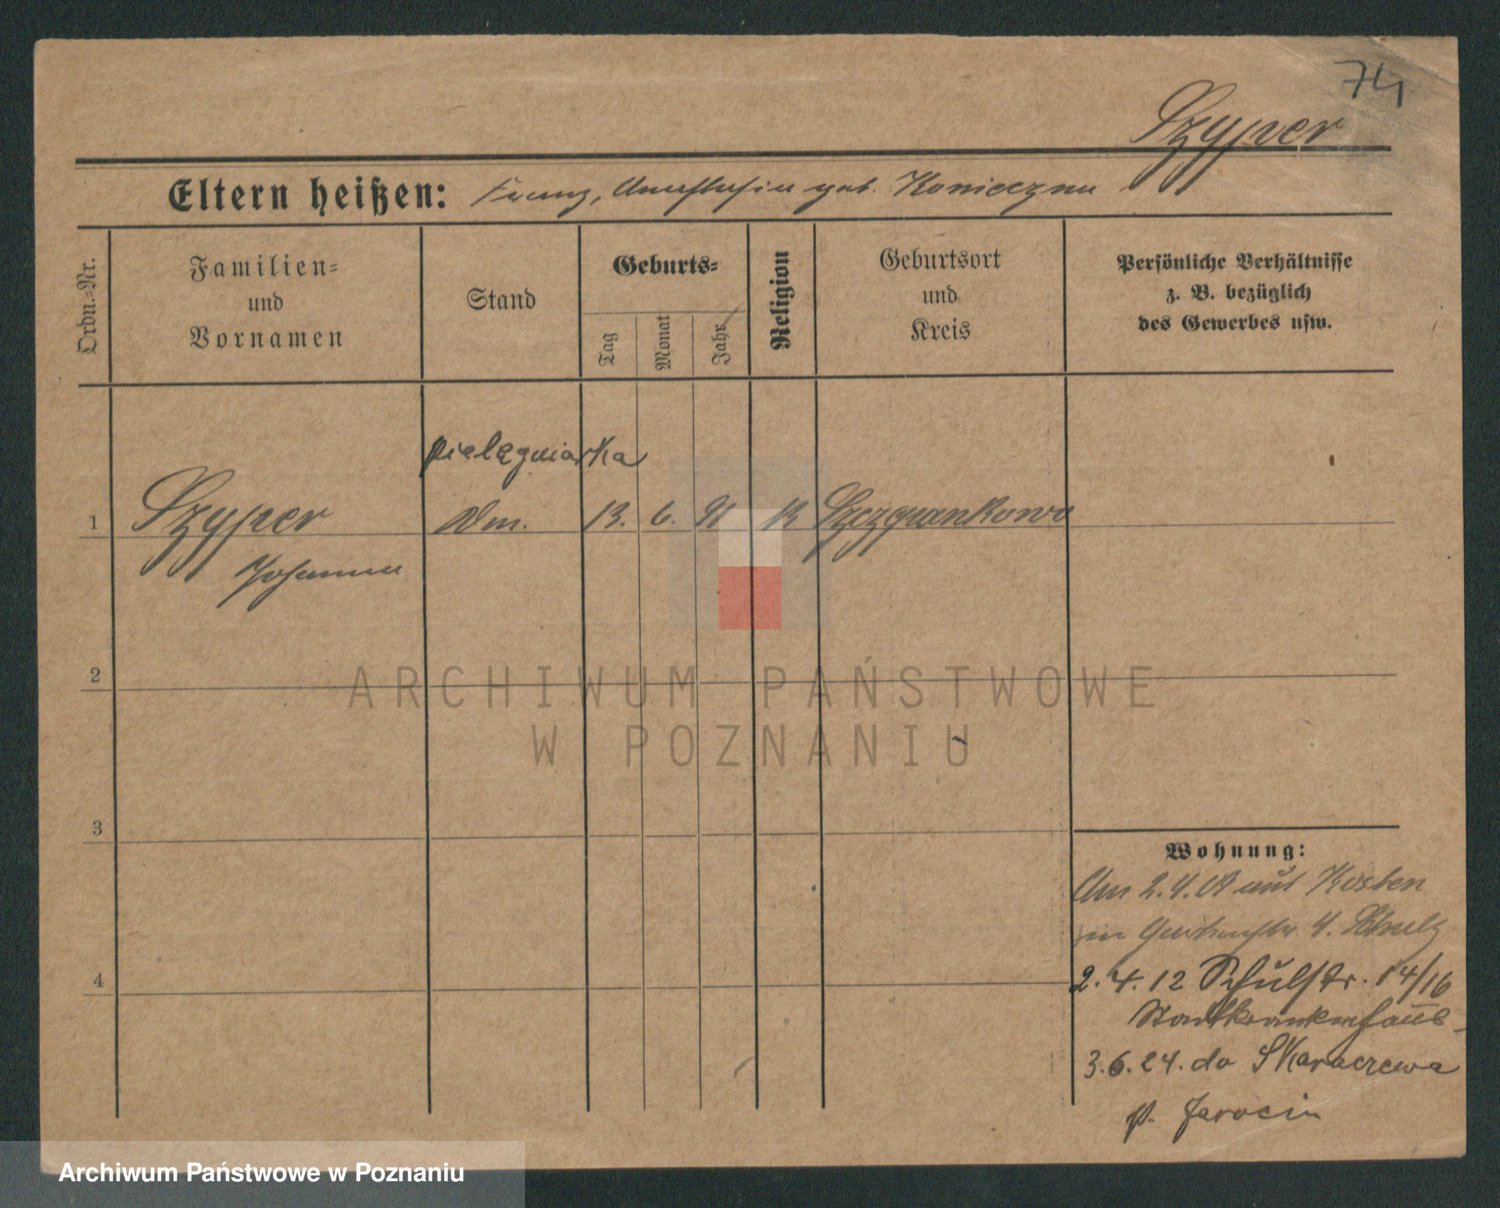 74
Szyper
Eltern heißen: Franz, Anastasia geb. Konieczna
Ordn.=Nr.
Familien=
und
Vornamen
Stand
Geburts=
Tag
Monat
Jahr
Religion
Geburtsort
und
Kreis
Persönliche Verhältnisse
z. B. bezüglich
des Gewerbes usw.
pielęgniarka
1 Szyper Dm. 13. 6. K Szczepankowo
Johanna
2
ARCHIWUM PAŃSTWOWE
W POZNANIU
3
Wohnung:
2. 4. aus Kosten
in 4. Schulz
4
2. 4. 12 Schulstr. 14/16
Stadtkrankenhaus
3. 6. 24. do Skaraczewa
p. Jarocin
Archiwum Państwowe w Poznaniu